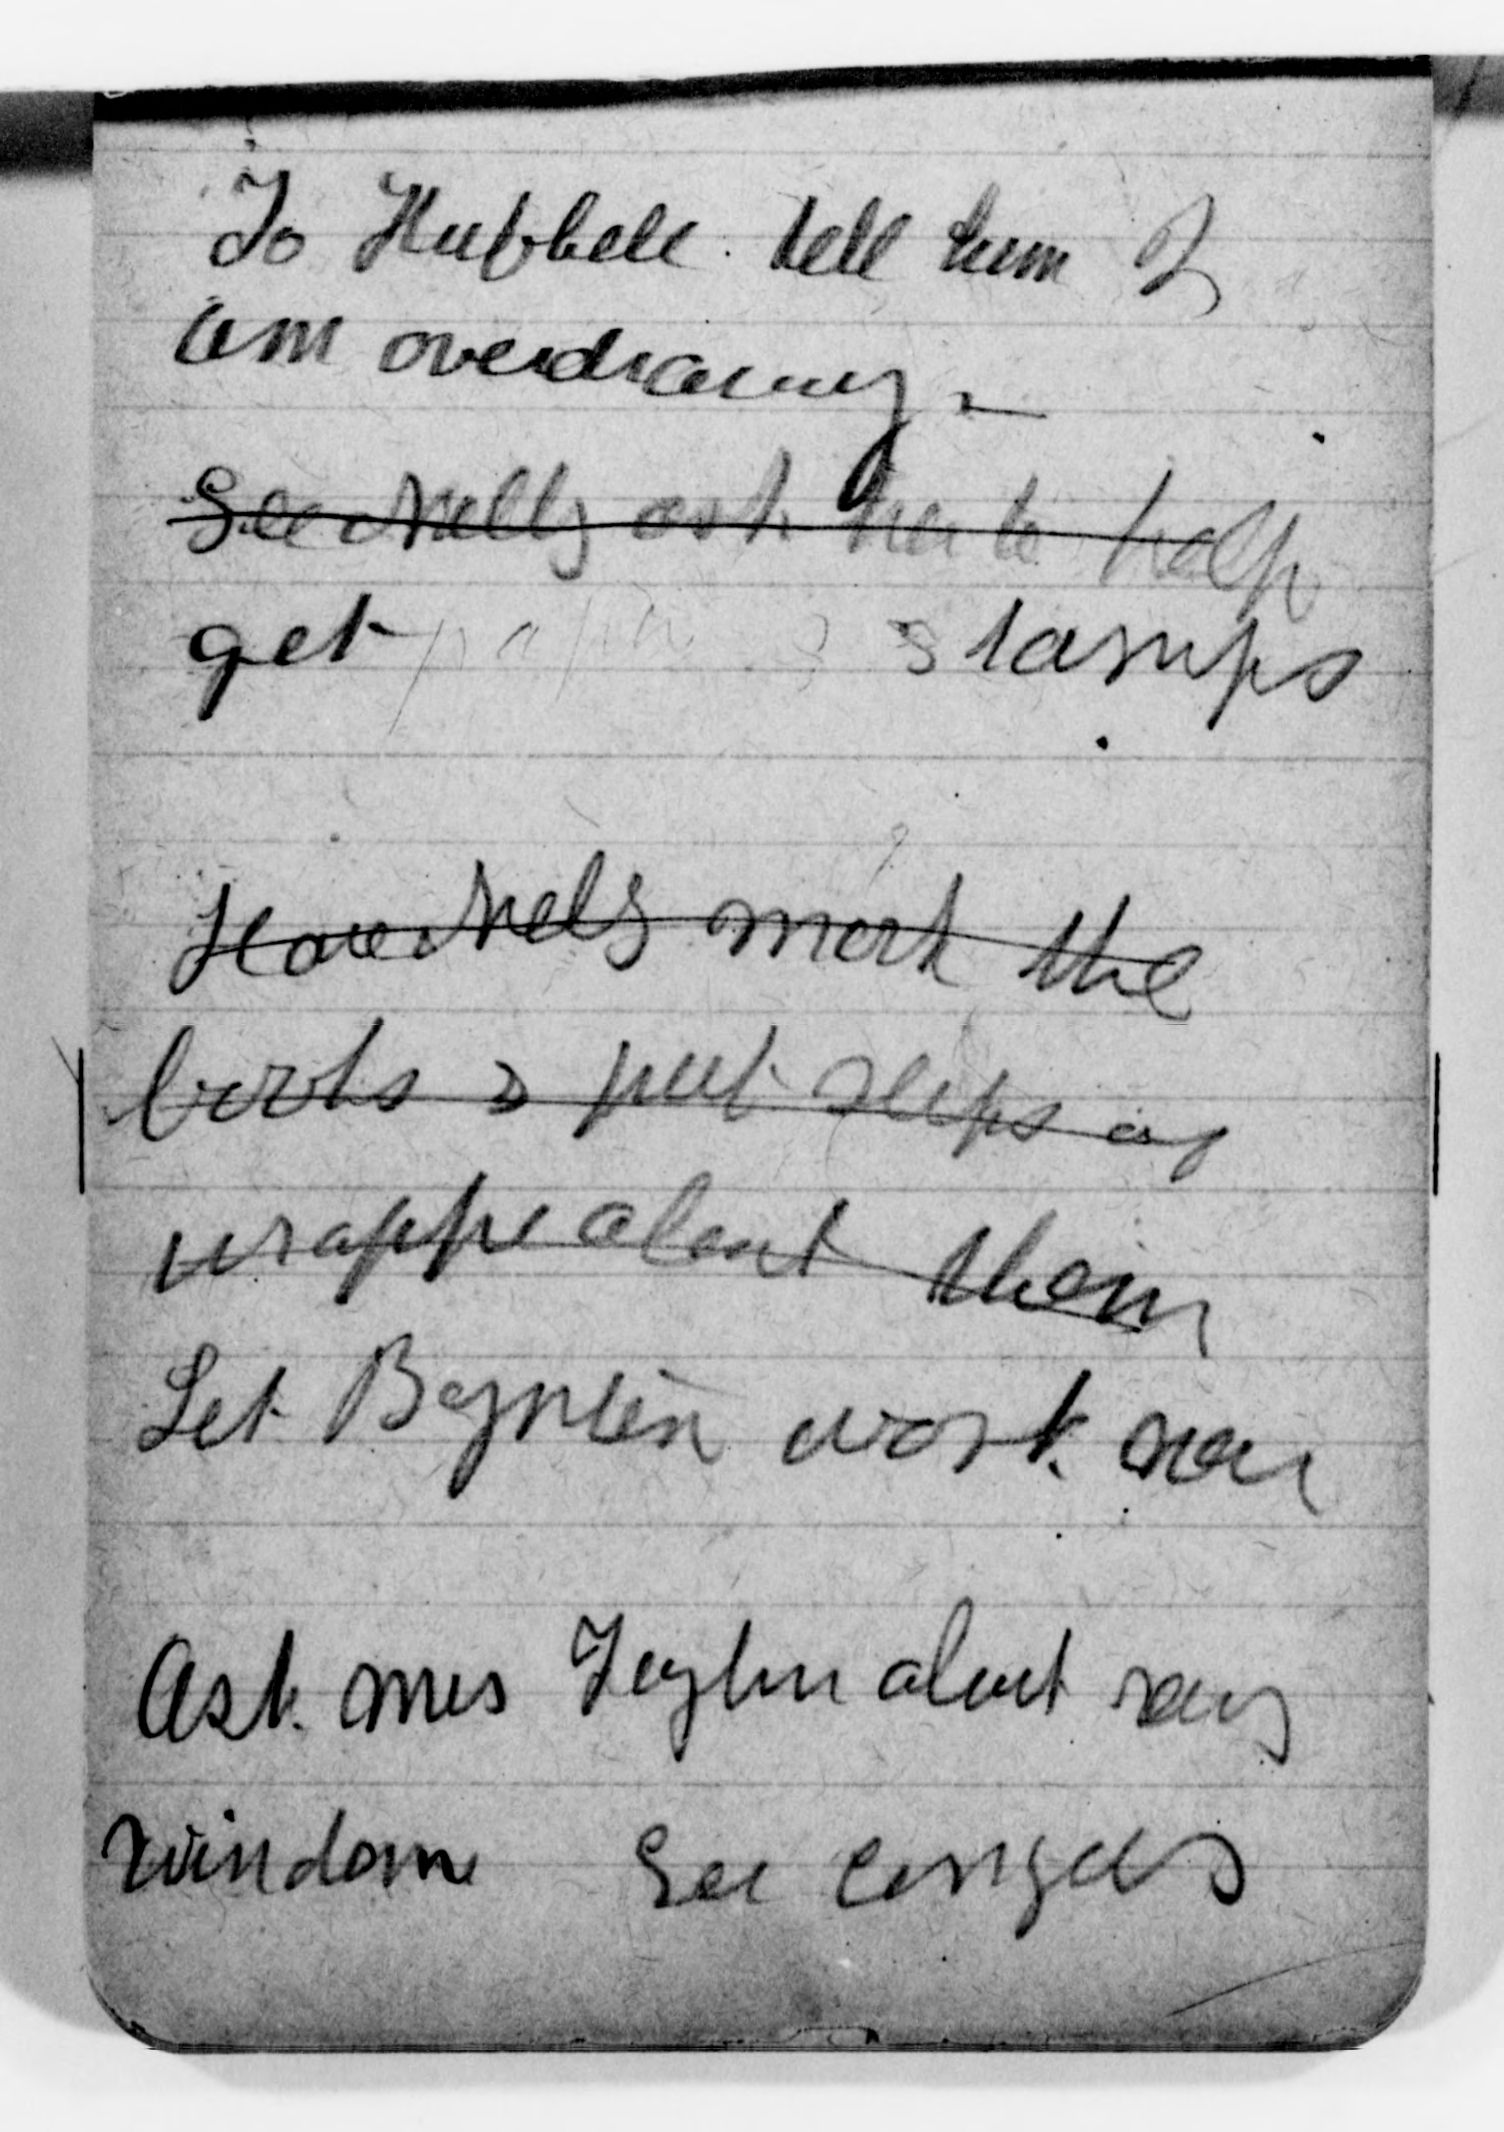 To Hubbell. tell him I
am overdrawing –
See Nelly ask her to help
get paper & stamps
Have Nelly mark the
books & put slips as
wrapper about them
Let Boynton work now
Ask Mrs Taylor about
Windom See